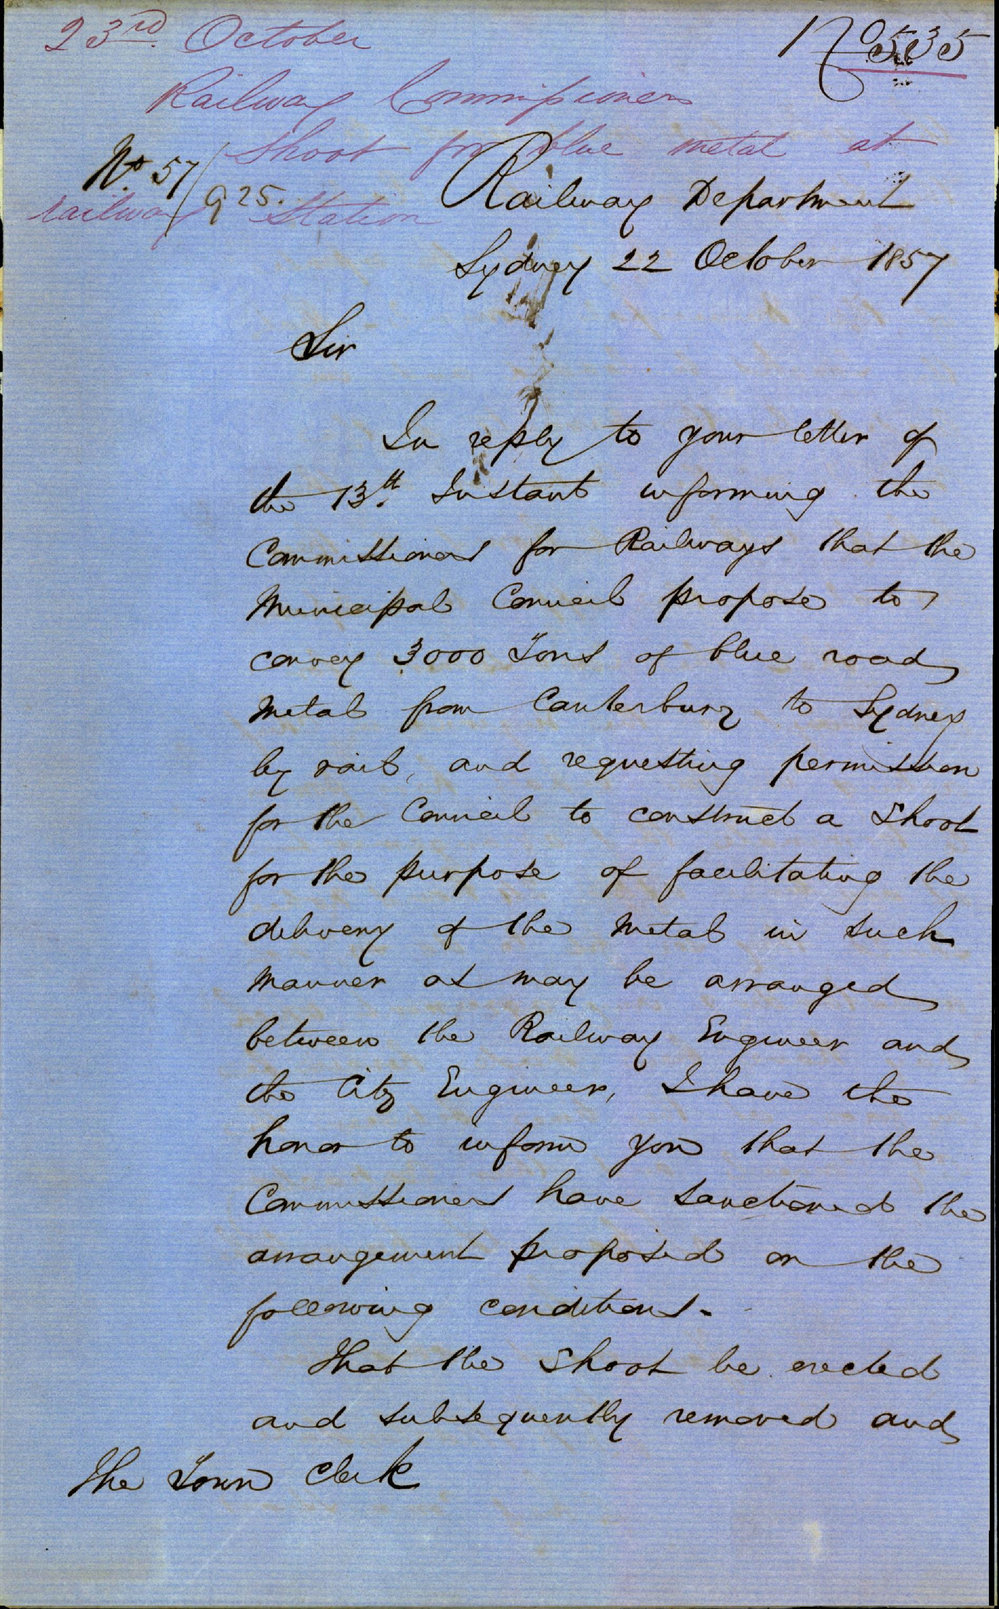 23rd October
No 535
Railway Commissioners
Shoot for blue metal at
railway Station
No. 57/925.
Railway Department
Sydney 22 October 1857
Sir
In reply to your letter of
the 13th Instant informing the
Commissioners for Railways that the
Municipal Council propose to
convey 3000 Tons of blue road
Metal from Canterbury to Sydney
by rail, and requesting permission
for the Council to construct a Shoot
for the purpose of facilitating the
delivery of the Metal in such
manner as may be arranged
between the Railway Engineer and
the City Engineer, I have the
honor to inform you that the
Commissioners have sanctioned the
arrangement proposed on the
following conditions.-
That the Shoot be erected
and subsequently removed and
The Town Clerk